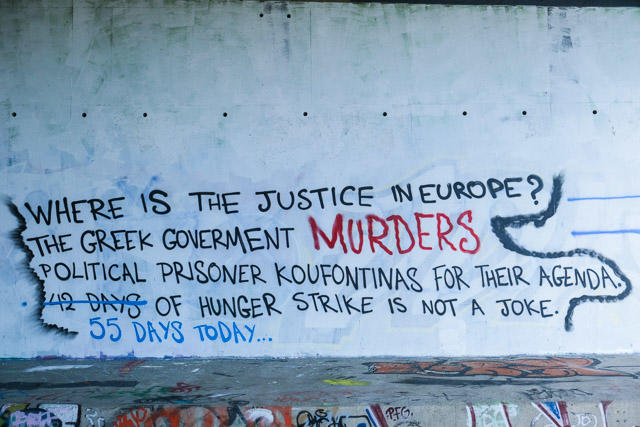 WHERE IS THE JUSTICE IN EUROPE?
THE GREEK GOVERMENT MURDERS
POLITICAL PRISONER KOUFONTINAS FOR THEIR AGENDA.
42 DAYS OF HUNGER STRIKE IS NOT A JOKE.
55 DAYS TODAY...